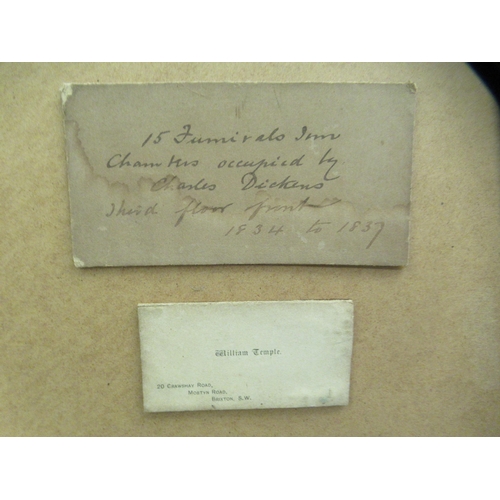 15 Furnivals Inn
Chambers occupied by
Charles Dickens
Third floor front
1834 to 1837
William Temple.
20 Crawshay Road,
Mostyn Road,
Brixton, S.W.